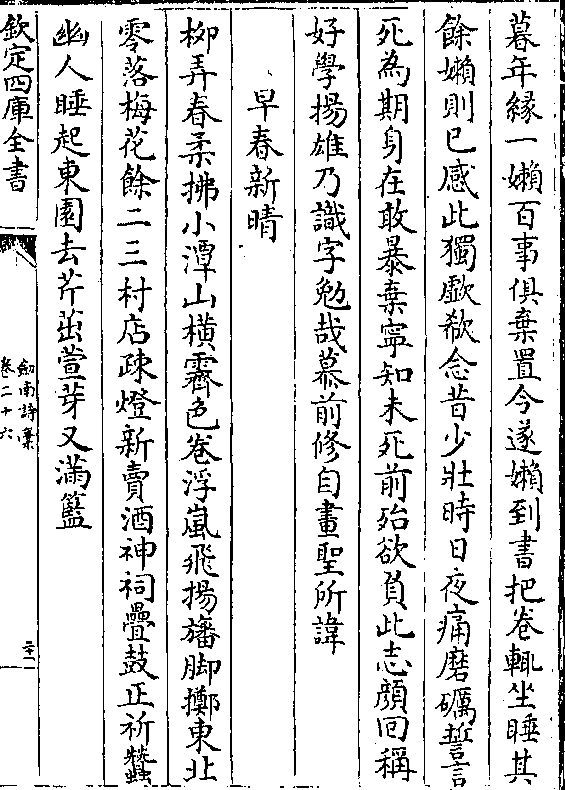 暮年縁一嬾百事俱棄置今遂嬾到書把卷輒坐睡其
餘嬾則已感此獨歔欷念昔少壯時日夜痛磨礪誓言
死為期身在敢暴棄寧知未死前殆欲負此志顔回稱
好學揚雄乃識字勉哉慕前修自畫聖所諱
早春新晴
柳弄春柔拂小潭山橫霽色卷浮嵐飛揚旛脚擲東北
零落梅花餘二三村店疎燈新賣酒神祠疊鼓正祈蠶
幽人睡起東園去芹茁萱芽又滿籃
欽定四庫全書
劔南詩集
卷二十六
二十一